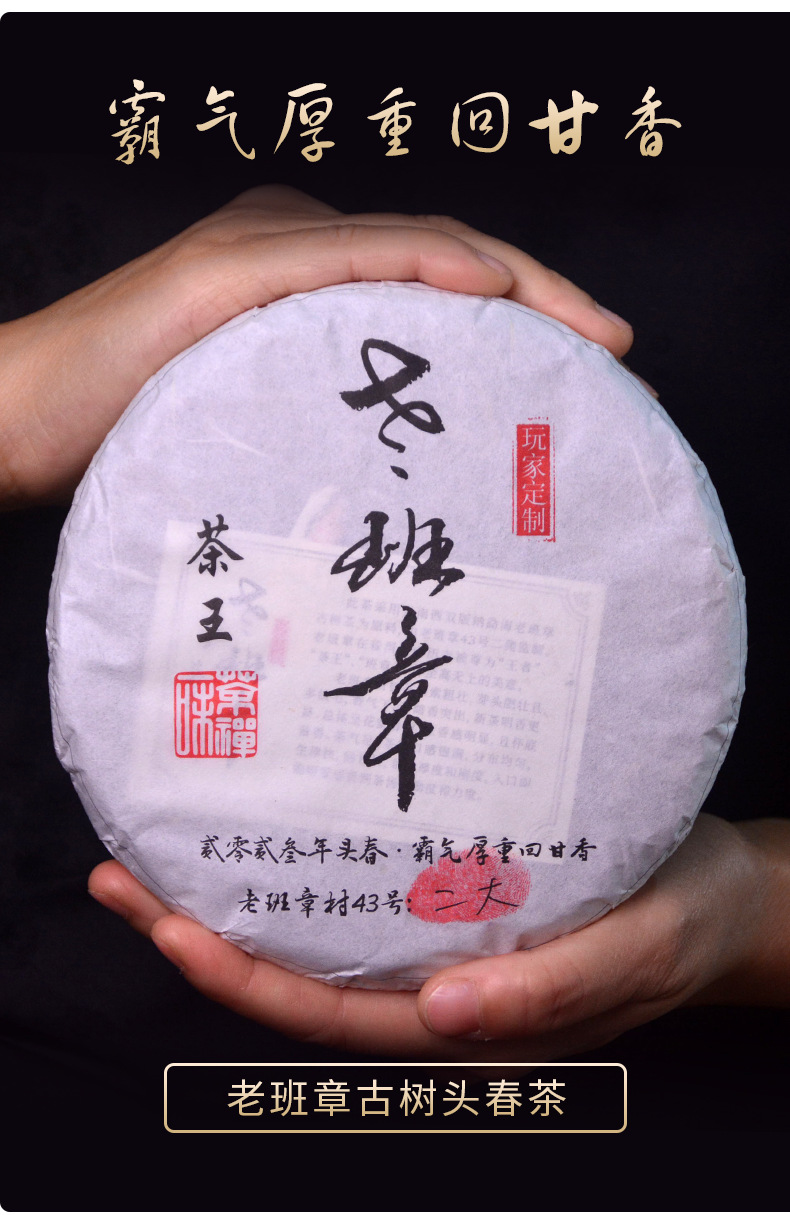 霸气厚重回甘香
老班章
玩家定制
茶王
茶禅一味
贰零贰叁年头春·霸气厚重回甘香
老班章村43号:二大
老班章古树头春茶